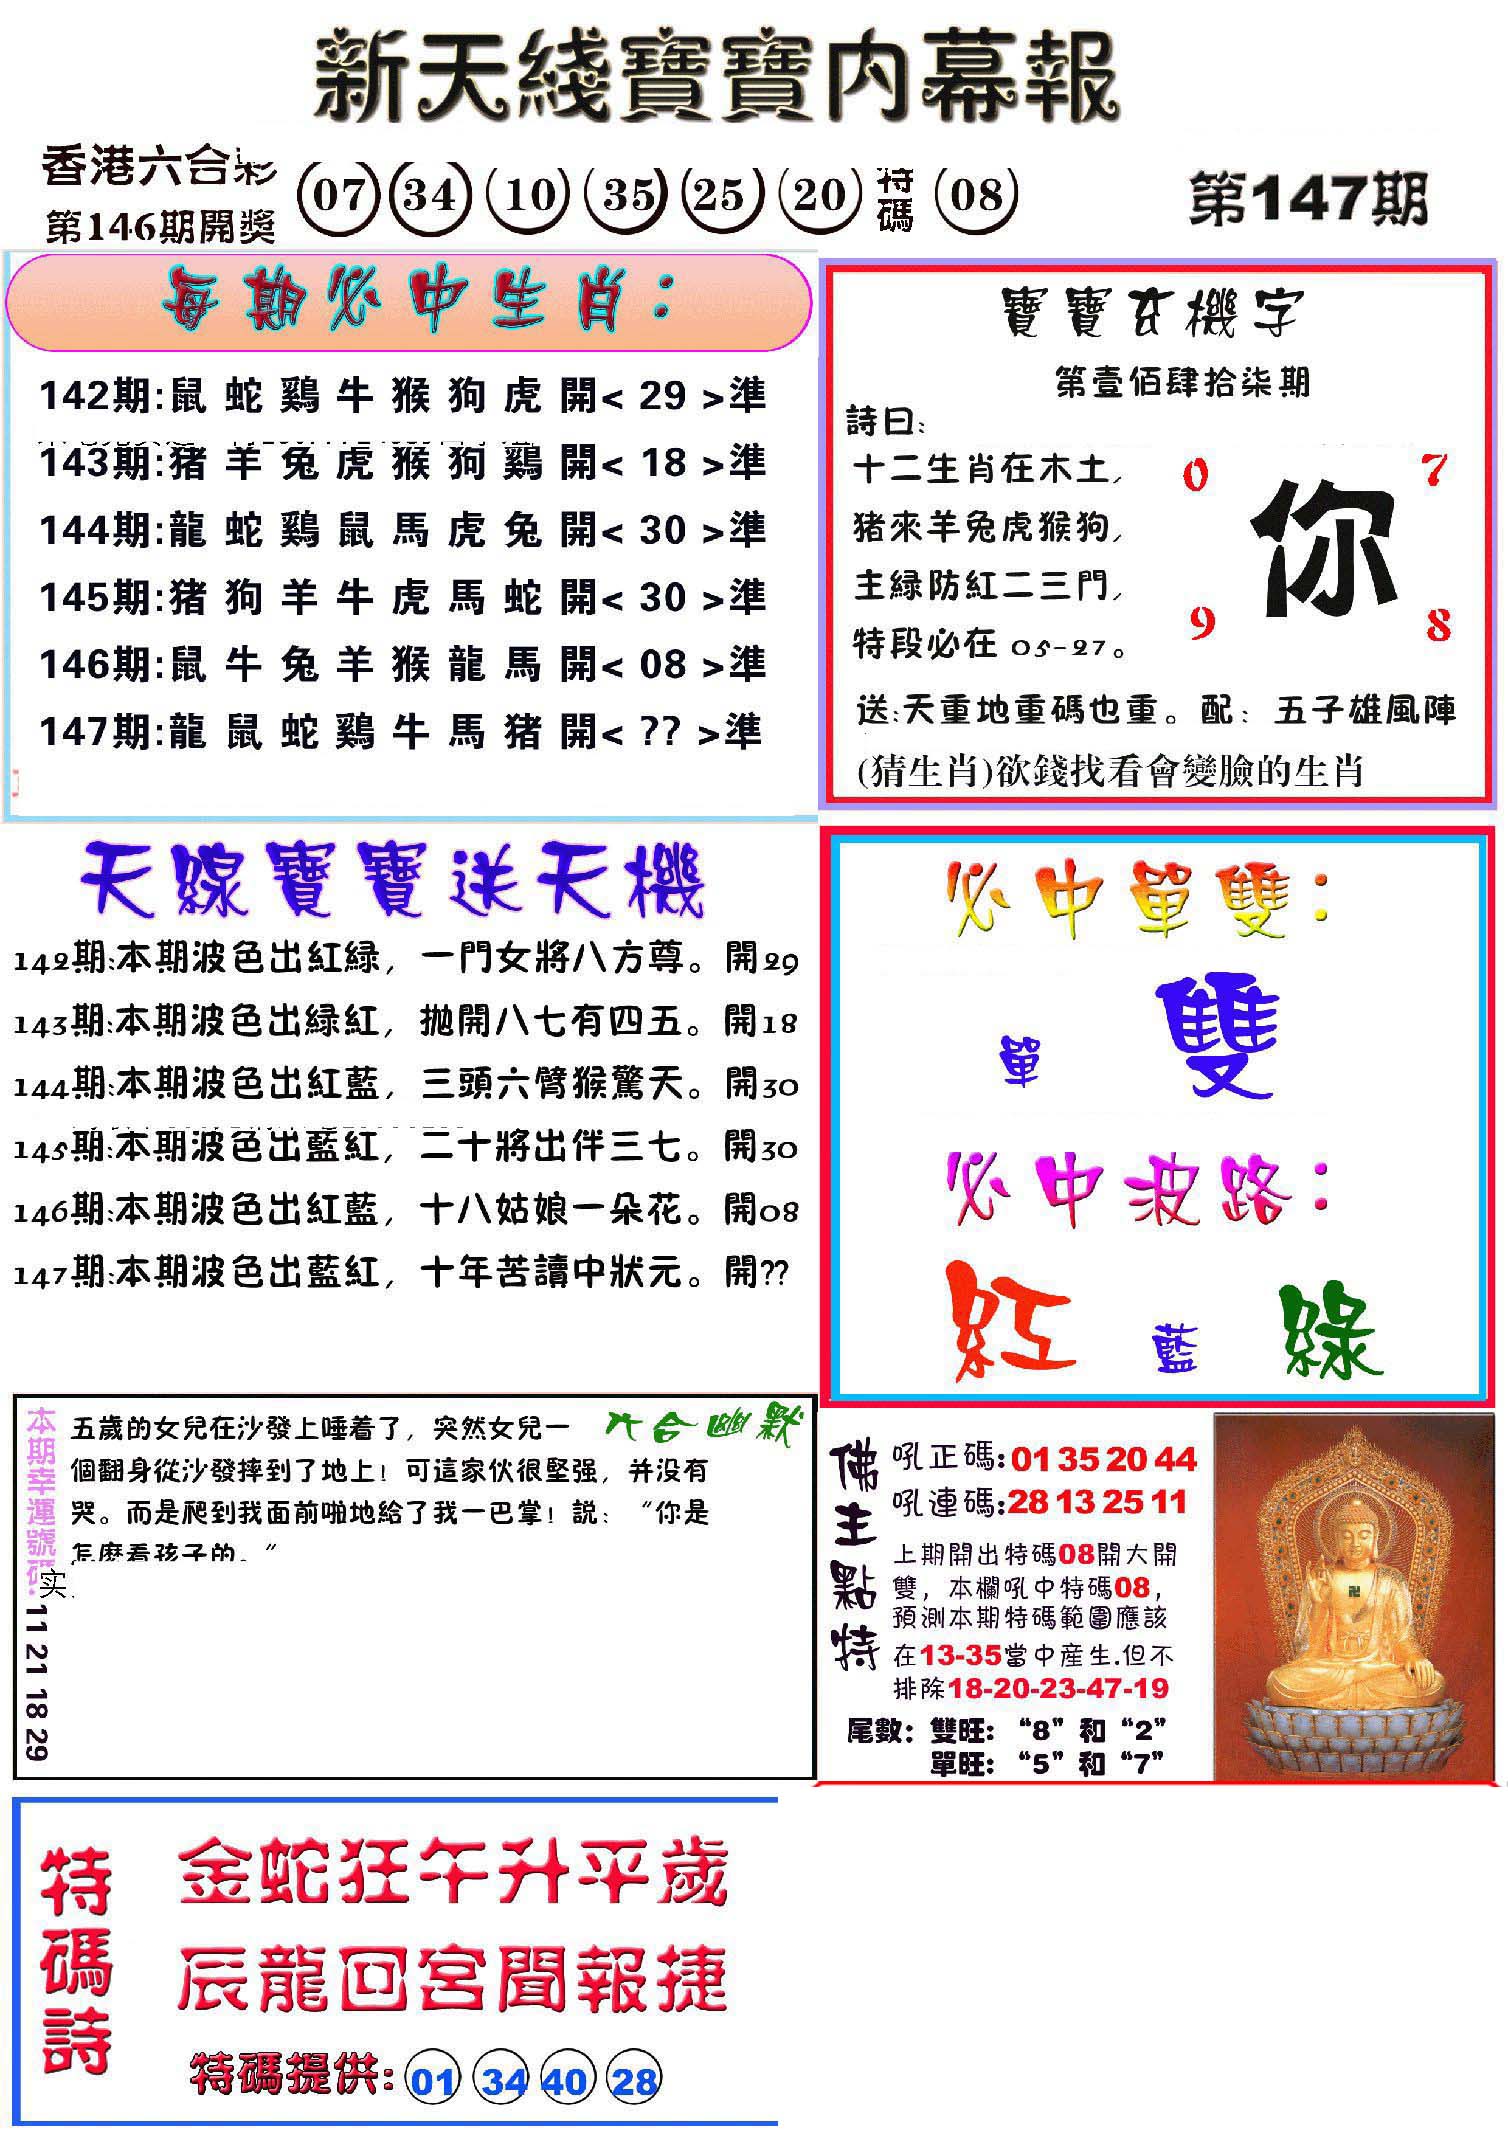 新天綫寶寶内幕報
香港六合彩
第146期開獎
07 34 10 35 25 20 特碼 08
第147期
每期必中生肖：
142期:鼠 蛇 鷄 牛 猴 狗 虎 開< 29 >準
143期:猪 羊 兔 虎 猴 狗 鷄 開< 18 >準
144期:龍 蛇 鷄 鼠 馬 虎 兔 開< 30 >準
145期:猪 狗 羊 牛 虎 馬 蛇 開< 30 >準
146期:鼠 牛 兔 羊 猴 龍 馬 開< 08 >準
147期:龍 鼠 蛇 鷄 牛 馬 猪 開< ?? >準
寶寶玄機字
第壹佰肆拾柒期
詩曰:
十二生肖在木土,
猪來羊兔虎猴狗,
主緑防紅二三門,
特段必在 05-27。
0 7
你
9 8
送:天重地重碼也重。配：五子雄風陣
(猜生肖)欲錢找看會變臉的生肖
天線寶寶送天機
142期:本期波色出紅緑，一門女將八方尊。開29
143期:本期波色出緑紅，抛開八七有四五。開18
144期:本期波色出紅藍，三頭六臂猴驚天。開30
145期:本期波色出藍紅，二十將出伴三七。開30
146期:本期波色出紅藍，十八姑娘一朵花。開08
147期:本期波色出藍紅，十年苦讀中狀元。開??
必中單雙：
單 雙
必中波路：
紅 藍 緑
本期幸運號碼: 11 21 18 29
六合幽默
五歲的女兒在沙發上睡着了，突然女兒一
個翻身從沙發摔到了地上！可這家伙很堅强，并没有
哭。而是爬到我面前啪地給了我一巴掌！説：“你是
怎麽看孩子的。”
实
佛主點特
吼正碼:01 35 20 44
吼連碼:28 13 25 11
上期開出特碼08開大開
雙，本欄吼中特碼08，
預測本期特碼範圍應該
在13-35當中産生.但不
排除18-20-23-47-19
尾數：雙旺：“8”和“2”
單旺：“5”和“7”
特碼詩
金蛇狂午升平歲
辰龍回宮聞報捷
特碼提供: 01 34 40 28